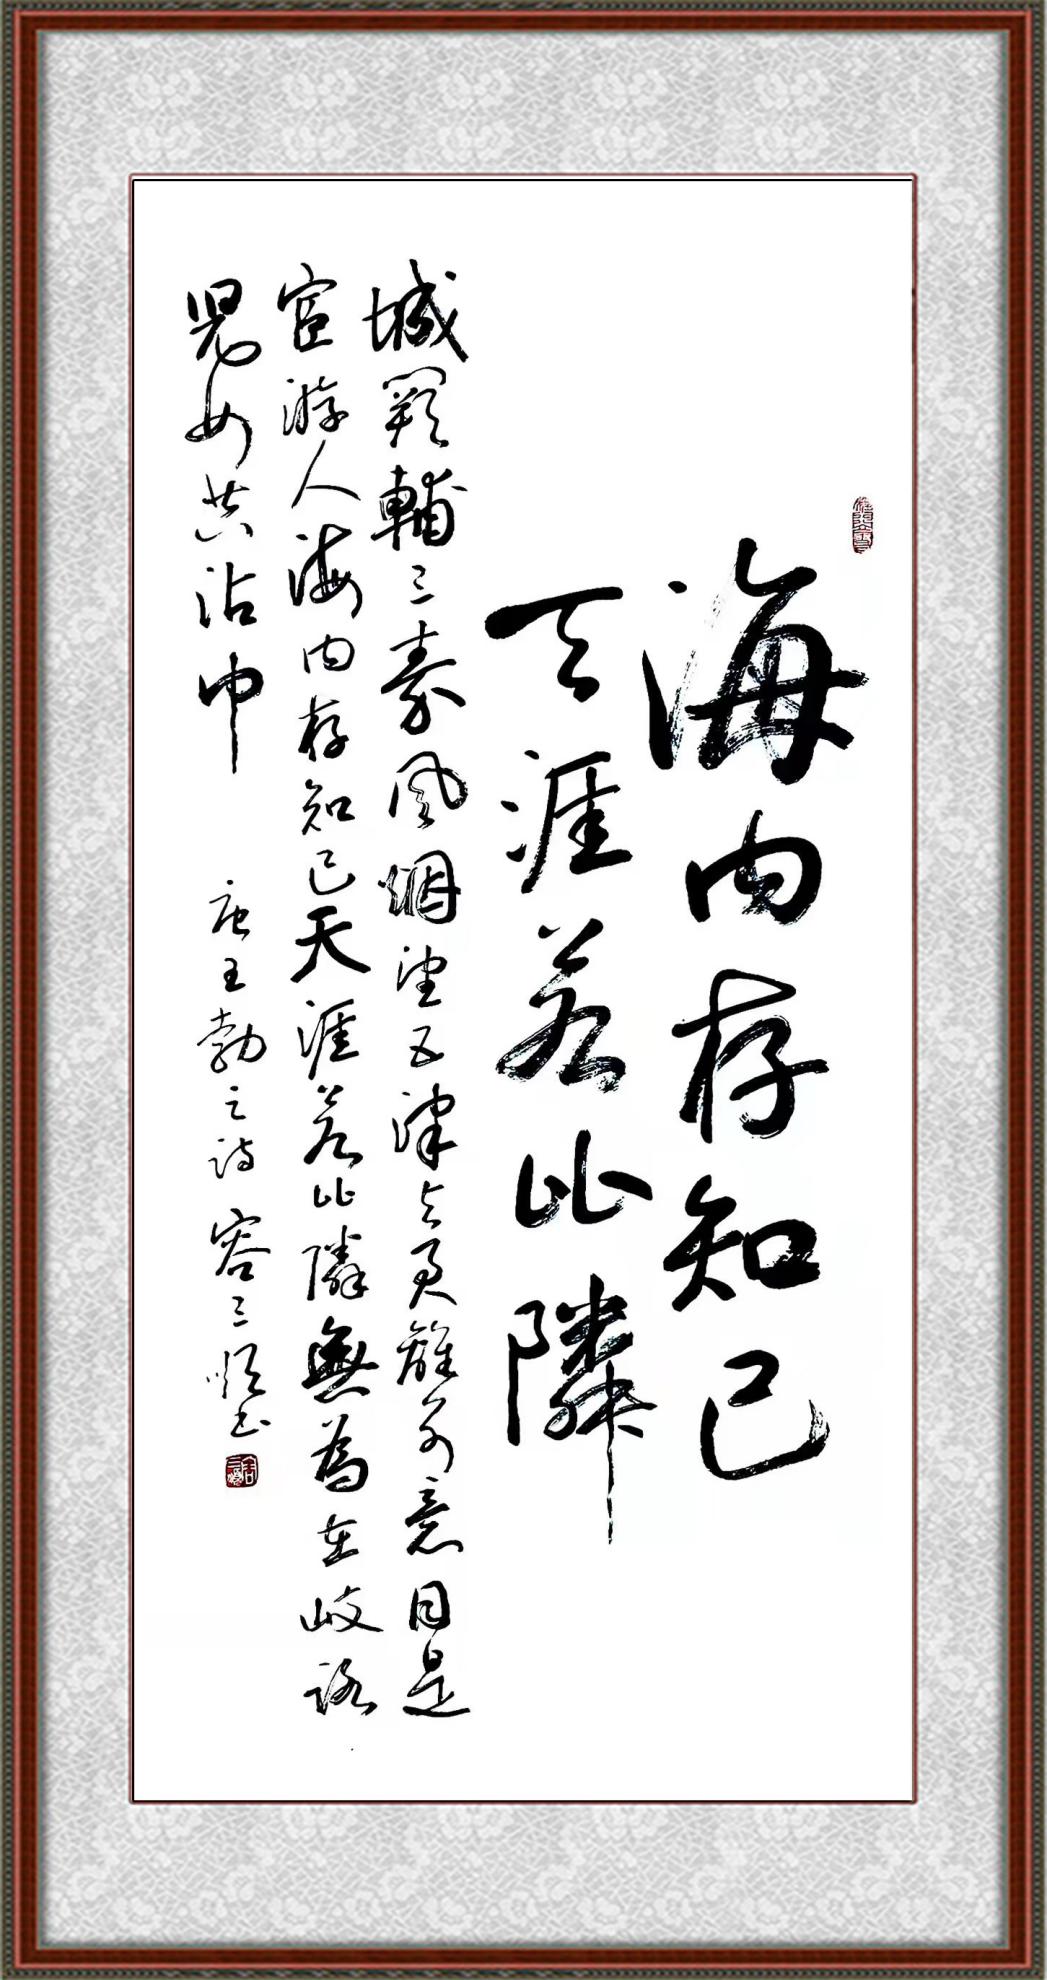 海内存知己
天涯若比隣
城闕輔三秦風烟望五津与君離别意同是
宦游人海内存知己天涯若比隣無為在岐路
児女共沾巾 唐王勃之诗 容三顺书